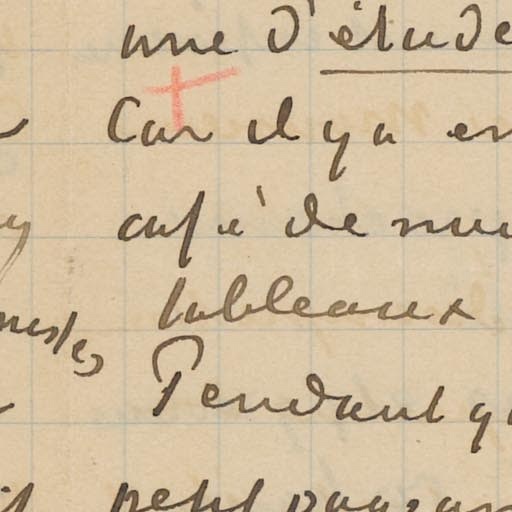 une d'étude
Car il y a en
café de nui
tableaux
Pendant q
petit paysan